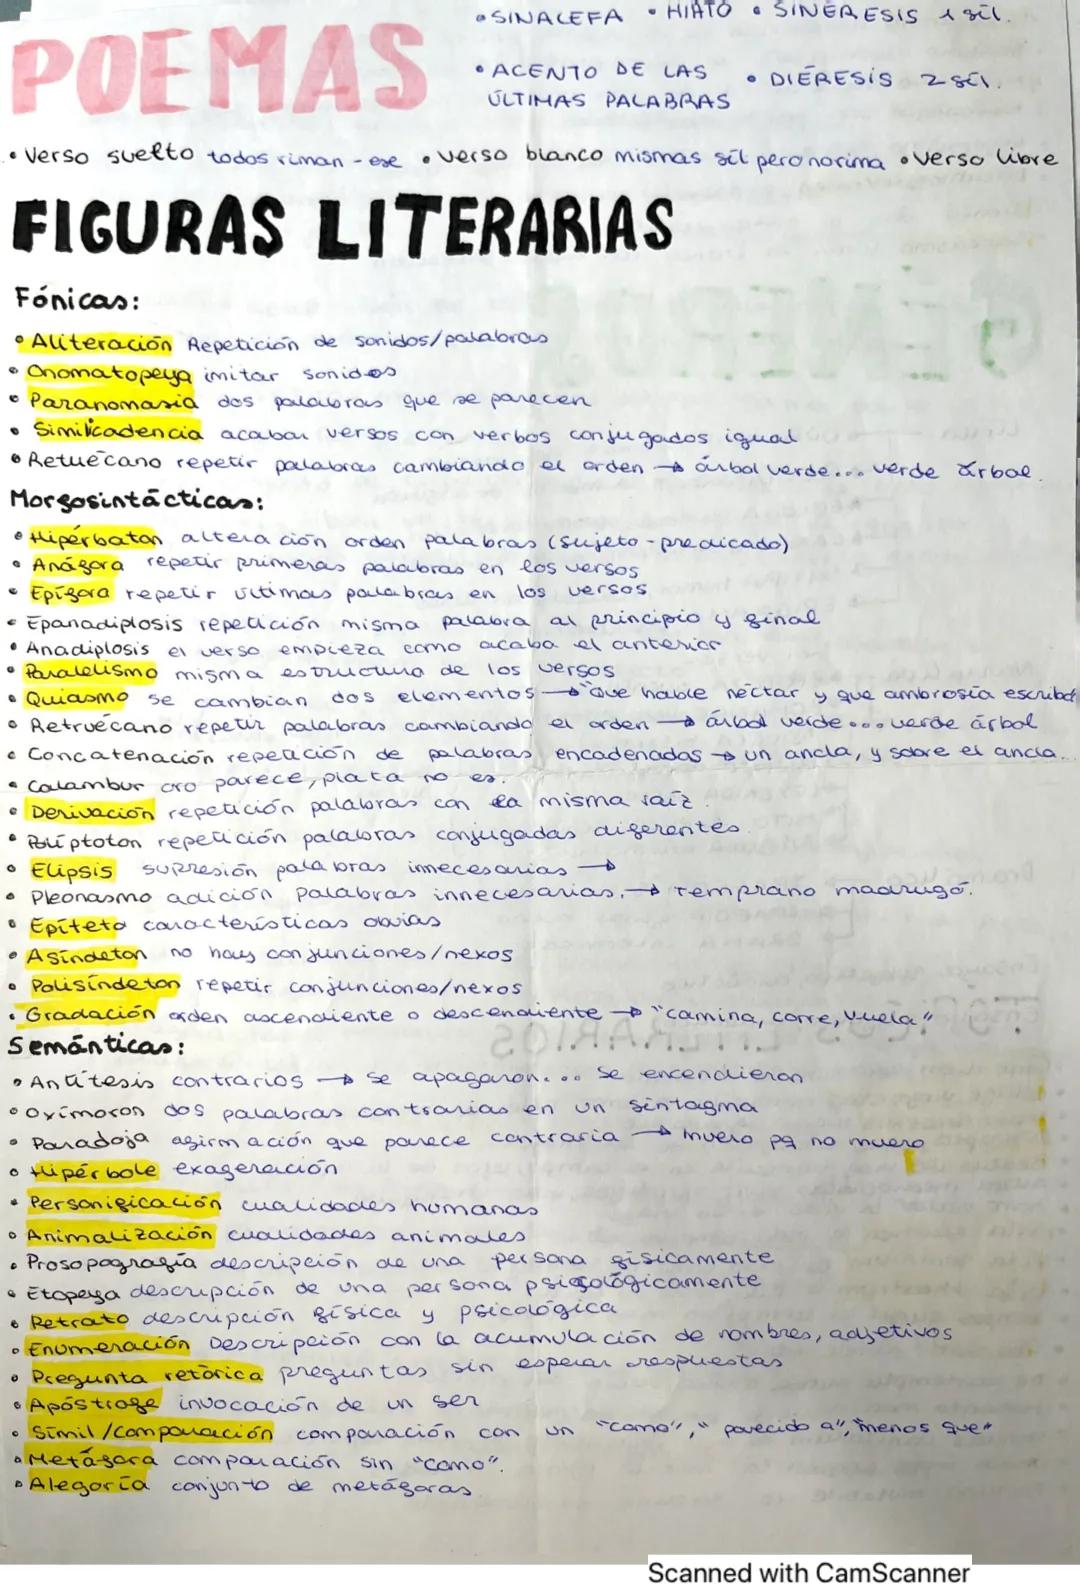 • SINALEFA • HIATO • SINÉRESIS 1 síl.
POEMAS
• ACENTO DE LAS ÚLTIMAS PALABRAS • DIÉRESIS 2 síl.
• Verso suelto todos riman - ese • Verso blanco mismas síl pero no rima • Verso libre
FIGURAS LITERARIAS
Fónicas:
• Aliteración Repetición de sonidos/palabras
• Onomatopeya imitar sonidos
• Paranomasia dos palabras que se parecen
• Similicadencia acabar versos con verbos conjugados igual
• Retuécano repetir palabras cambiando el orden → árbol verde... verde árbol.
Morfosintácticas:
• Hipérbaton alteración orden palabras (sujeto - predicado)
• Anáfora repetir primeras palabras en los versos
• Epífora repetir últimas palabras en los versos
• Epanadiplosis repetición misma palabra al principio y final
• Anadiplosis el verso empieza como acaba el anterior
• Paralelismo misma estructura de los versos
• Quiasmo se cambian dos elementos → "Que hable néctar y que ambrosía escriba
• Retruécano repetir palabras cambiando el orden → árbol verde... verde árbol
• Concatenación repetición de palabras encadenados → un ancla, y sobre el ancla...
• Calambur oro parece, plata no es.
• Derivación repetición palabras con la misma raíz.
• Políptoton repetición palabras conjugadas diferentes
• Elipsis supresión palabras innecesarias →
• Pleonasmo adición palabras innecesarias. → temprano madrugó.
• Epíteto características obvias
• Asíndeton no hay conjunciones/nexos
• Polisíndeton repetir conjunciones/nexos
• Gradación orden ascendiente o descendiente → "camina, corre, vuela"
Semánticas:
• Antítesis contrarios → se apagaron... se encendieron
• Oxímoron dos palabras contrarias en un sintagma
• Paradoja afirmación que parece contraria → muero pq no muero
• Hipérbole exageración
• Personificación cualidades humanas
• Animalización cualidades animales
• Prosopografía descripción de una persona físicamente
• Etopeya descripción de una persona psicológicamente
• Retrato descripción física y psicológica
• Enumeración Descripción con la acumulación de nombres, adjetivos
• Pregunta retòrica preguntas sin esperar respuestas
• Apóstrofe invocación de un ser
• Símil/comparación comparación con un "como", "parecido a", "menos que"
• Metáfora comparación sin "como".
• Alegoría conjunto de metáforas
Scanned with CamScanner